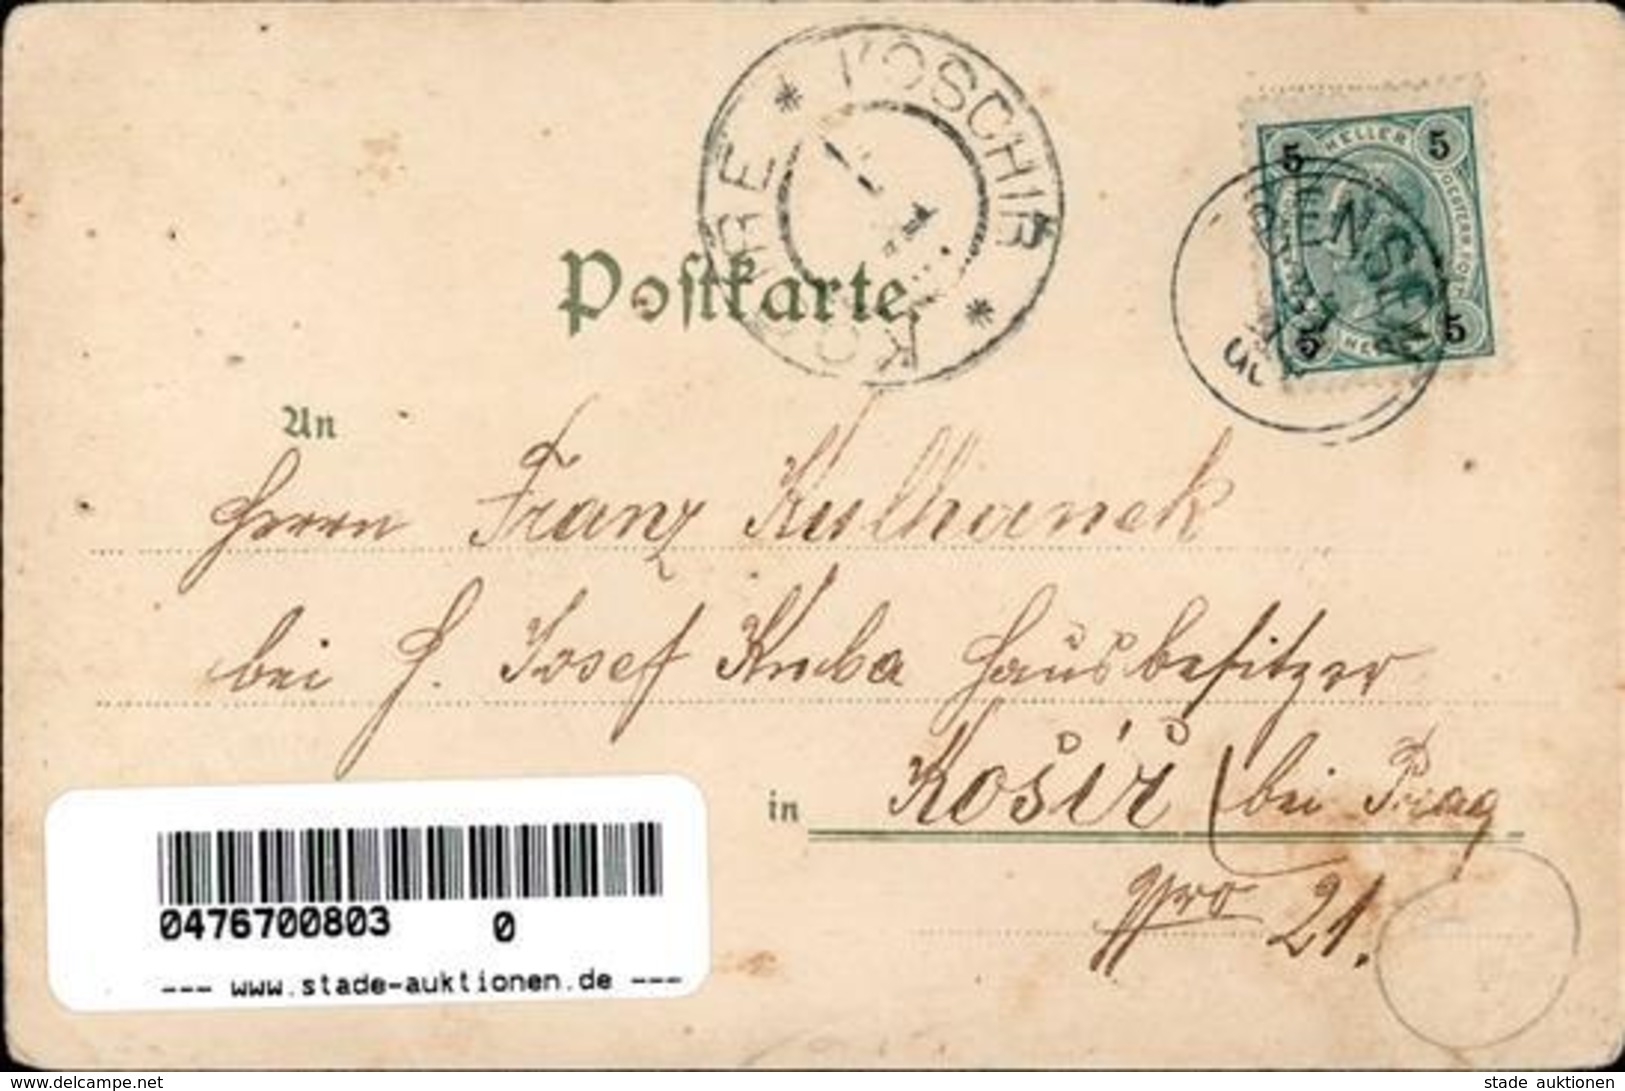 KOSCHIR * KOŠÍŘE *
5 HELLER 5
5 5
Postkarte.
An
Herrn Franz Kulhanek
bei H. Josef Kuba Hausbesitzer
in Košíř bei Prag
Npro 21.
0476700803 0
--- www.stade-auktionen.de ---
www.delcampe.net
stade auktionen